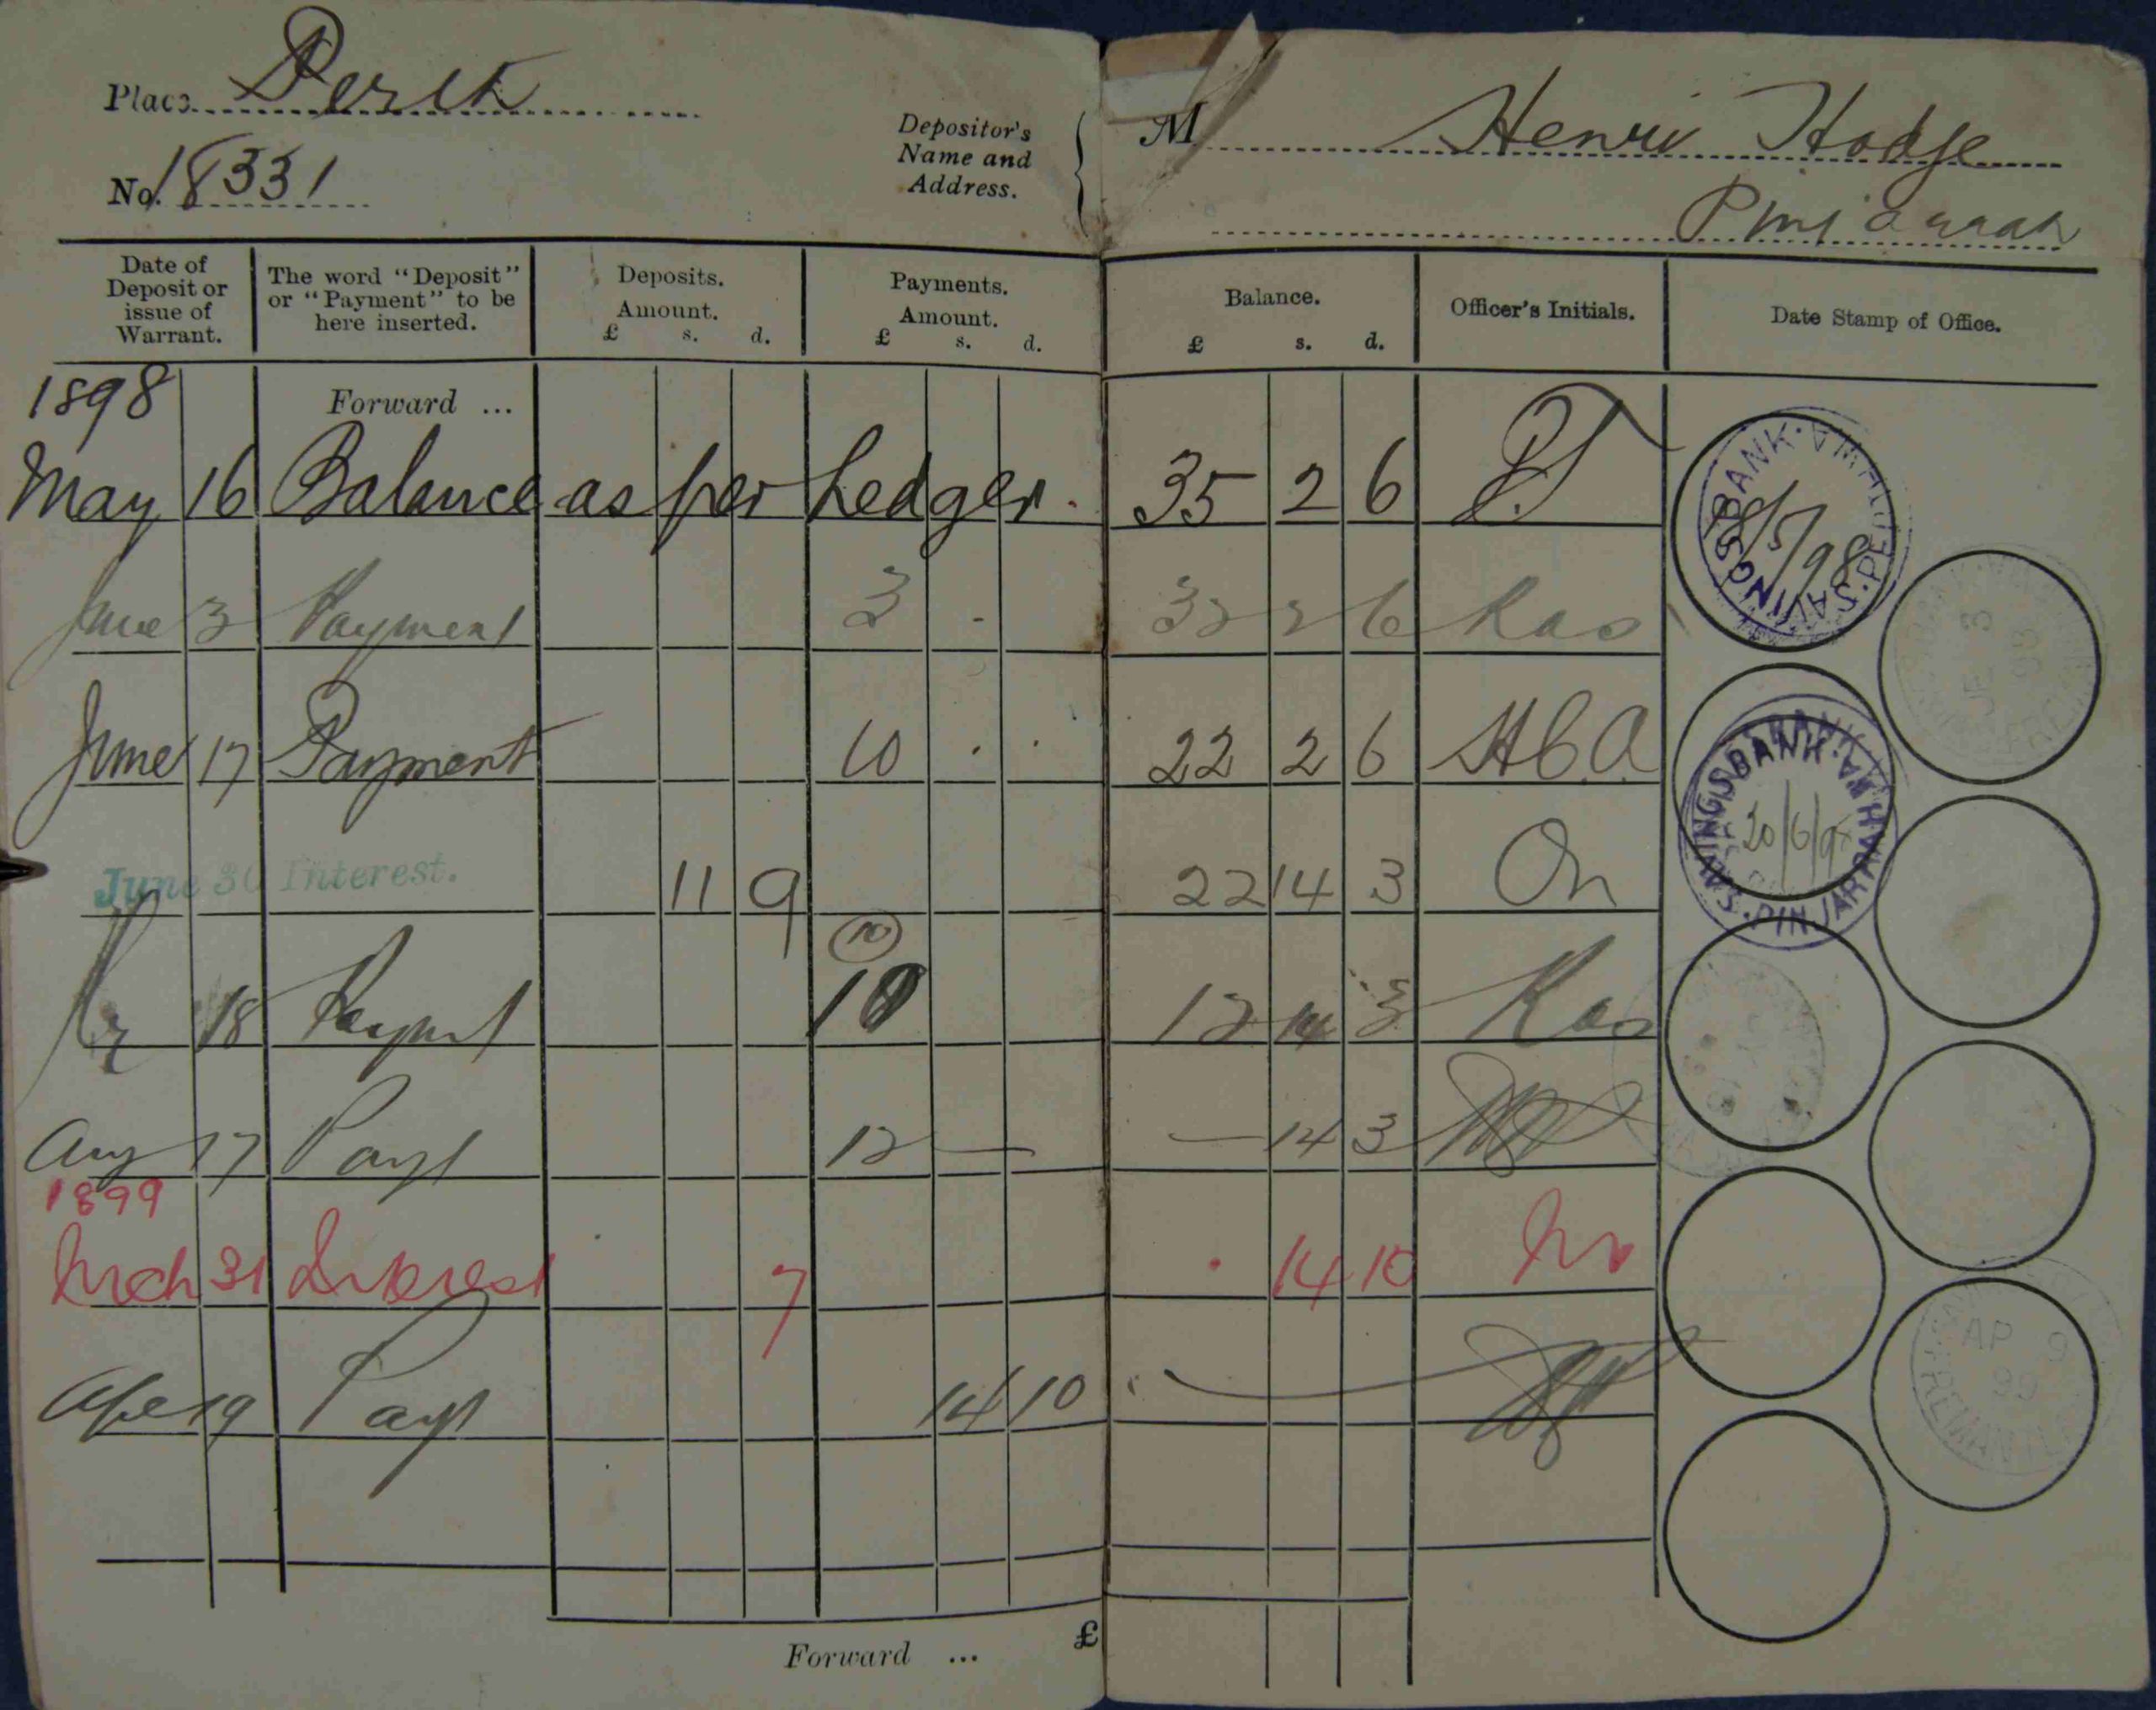 Place Perth
No. 18331
Depositor's Name and Address.
M Henri Hodge
Pinjarrah
Date of Deposit or issue of Warrant.
The word "Deposit" or "Payment" to be here inserted.
Deposits. Amount. £ s. d.
Payments. Amount. £ s. d.
Balance. £ s. d.
Officer's Initials.
Date Stamp of Office.
1898
Forward ...
May 16 Balance as per Ledger. 35 2 6
SAVINGS BANK 18/5/98
June 3 Payment 3 - 32 2 6
JE 3 98
June 17 Payment 10 . . 22 2 6 HCA
SAVINGS BANK PINJARRAH 20/6/98
June 30 Interest. 11 9 22 14 3
10
18 Payment 10 12 14 3
Aug 17 Payt 12 — — 14 3
1899
Mrch 31 Interest 7 . 14 10
Apl 19 Payt 14 10
AP 9 99 FREMANTLE
Forward ... £